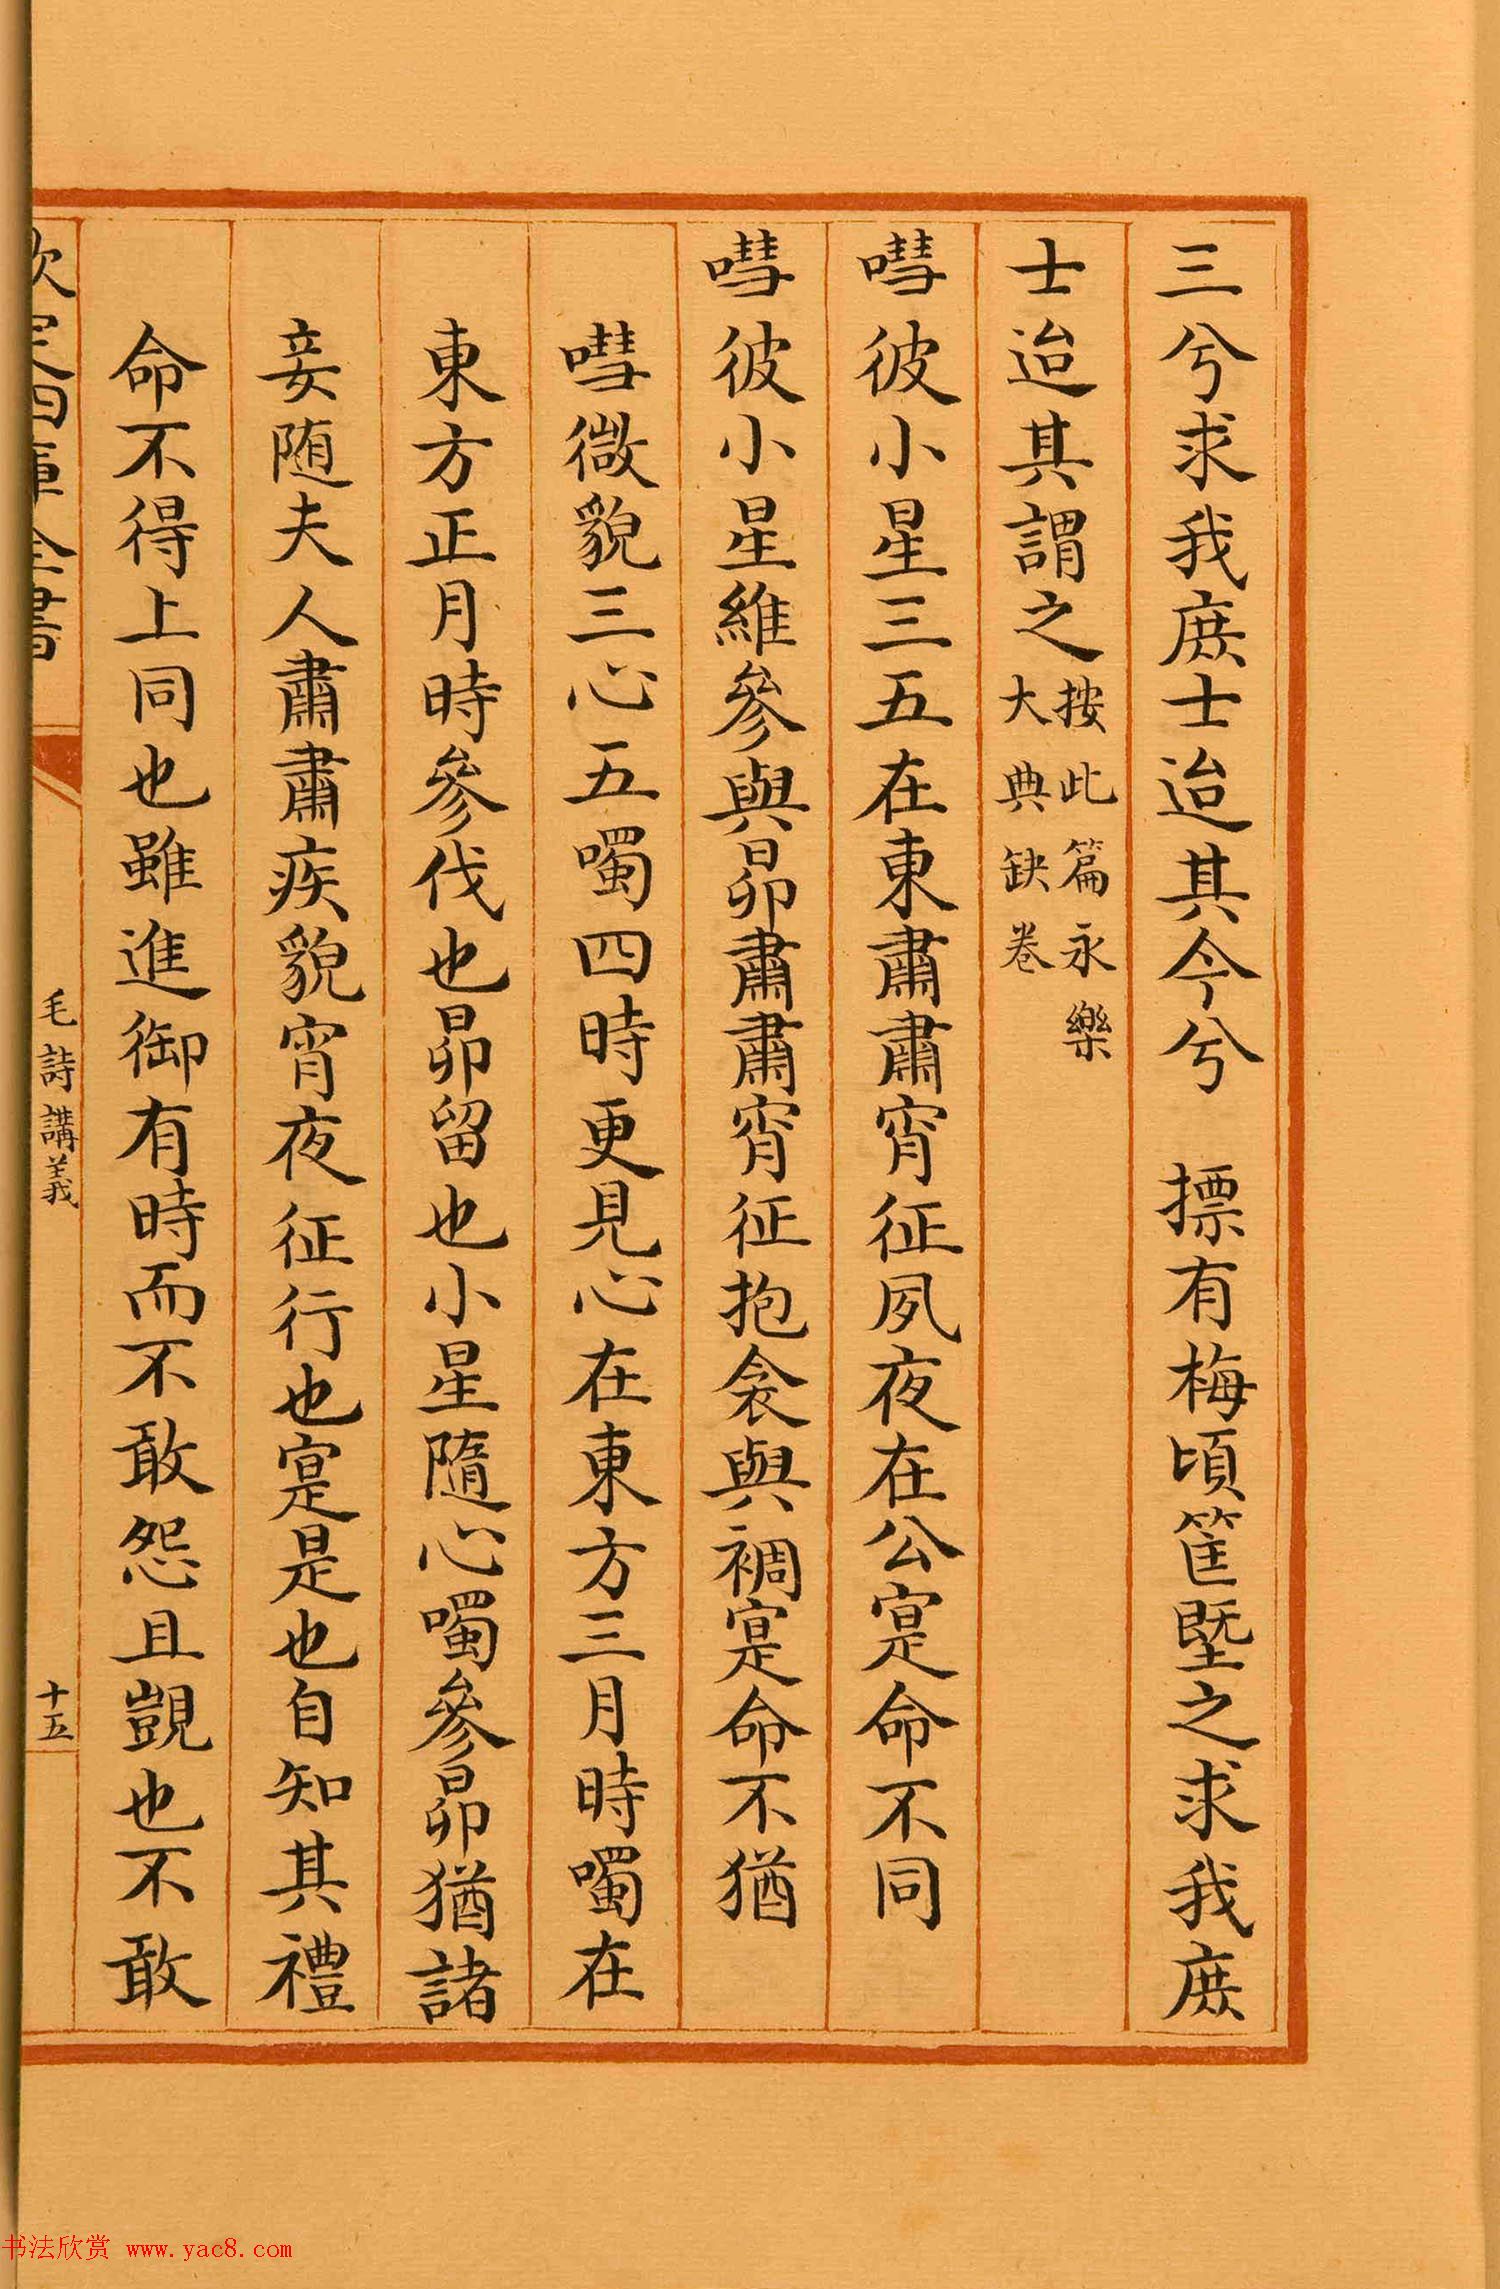 三兮求我庶士迨其今兮　摽有梅頃筐塈之求我庶
士迨其謂之按此篇永樂大典缺卷
嘒彼小星三五在東肅肅宵征夙夜在公寔命不同
嘒彼小星維參與昴肅肅宵征抱衾與裯寔命不猶
嘒微貌三心五噣四時更見心在東方三月時噣在
東方正月時參伐也昴留也小星隨心噣參昴猶諸
妾随夫人肅肅疾貌宵夜征行也寔是也自知其禮
命不得上同也雖進御有時而不敢怨且覬也不敢
欽定四庫全書
毛詩講義
十五
书法欣赏 www.yac8.com